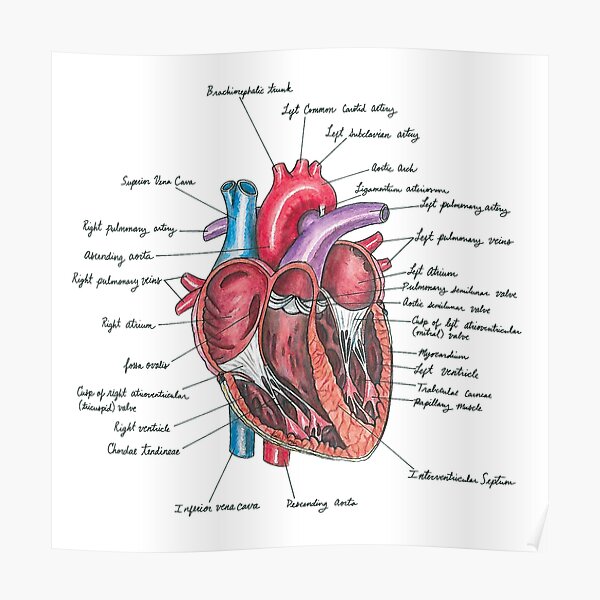 Brachiocephalic trunk
Left Common Carotid artery
Left Subclavian artery
Aortic Arch
Superior Vena Cava
Ligamentum arteriosum
Left pulmonary artery
Right pulmonary artery
Left pulmonary veins
Ascending aorta
Left Atrium
Right pulmonary veins
Pulmonary semilunar valve
Aortic semilunar valve
Right atrium
Cusp of left atrioventricular
(mitral) valve
Myocardium
fossa ovalis
Left ventricle
Cusp of right atrioventricular
(tricuspid) valve
Trabeculae carneae
Papillary muscle
Right ventricle
Chordae tendineae
Interventricular Septum
Inferior vena cava
Descending Aorta